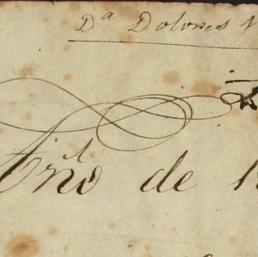 Dª Dolores
Año de 1